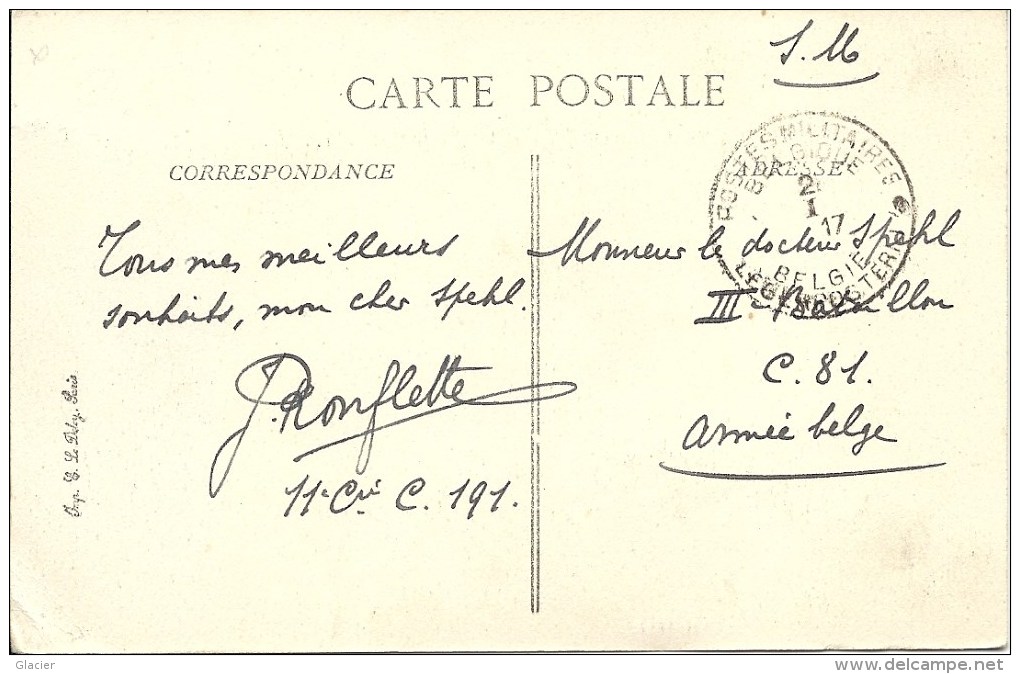 S.M
CARTE POSTALE
CORRESPONDANCE
ADRESSE
POSTES MILITAIRES
BELGIQUE
2
I
17
BELGIE
LEGERPOSTERIJ
Tous mes meilleurs
souhaits, mon cher Spehl.
J. Ronflette
11e Cie C. 191.
Monsieur le docteur Spehl
III e Bataillon
C. 81.
Armée belge
Imp. E. Le Deley, Paris
Glacier
www.delcampe.net